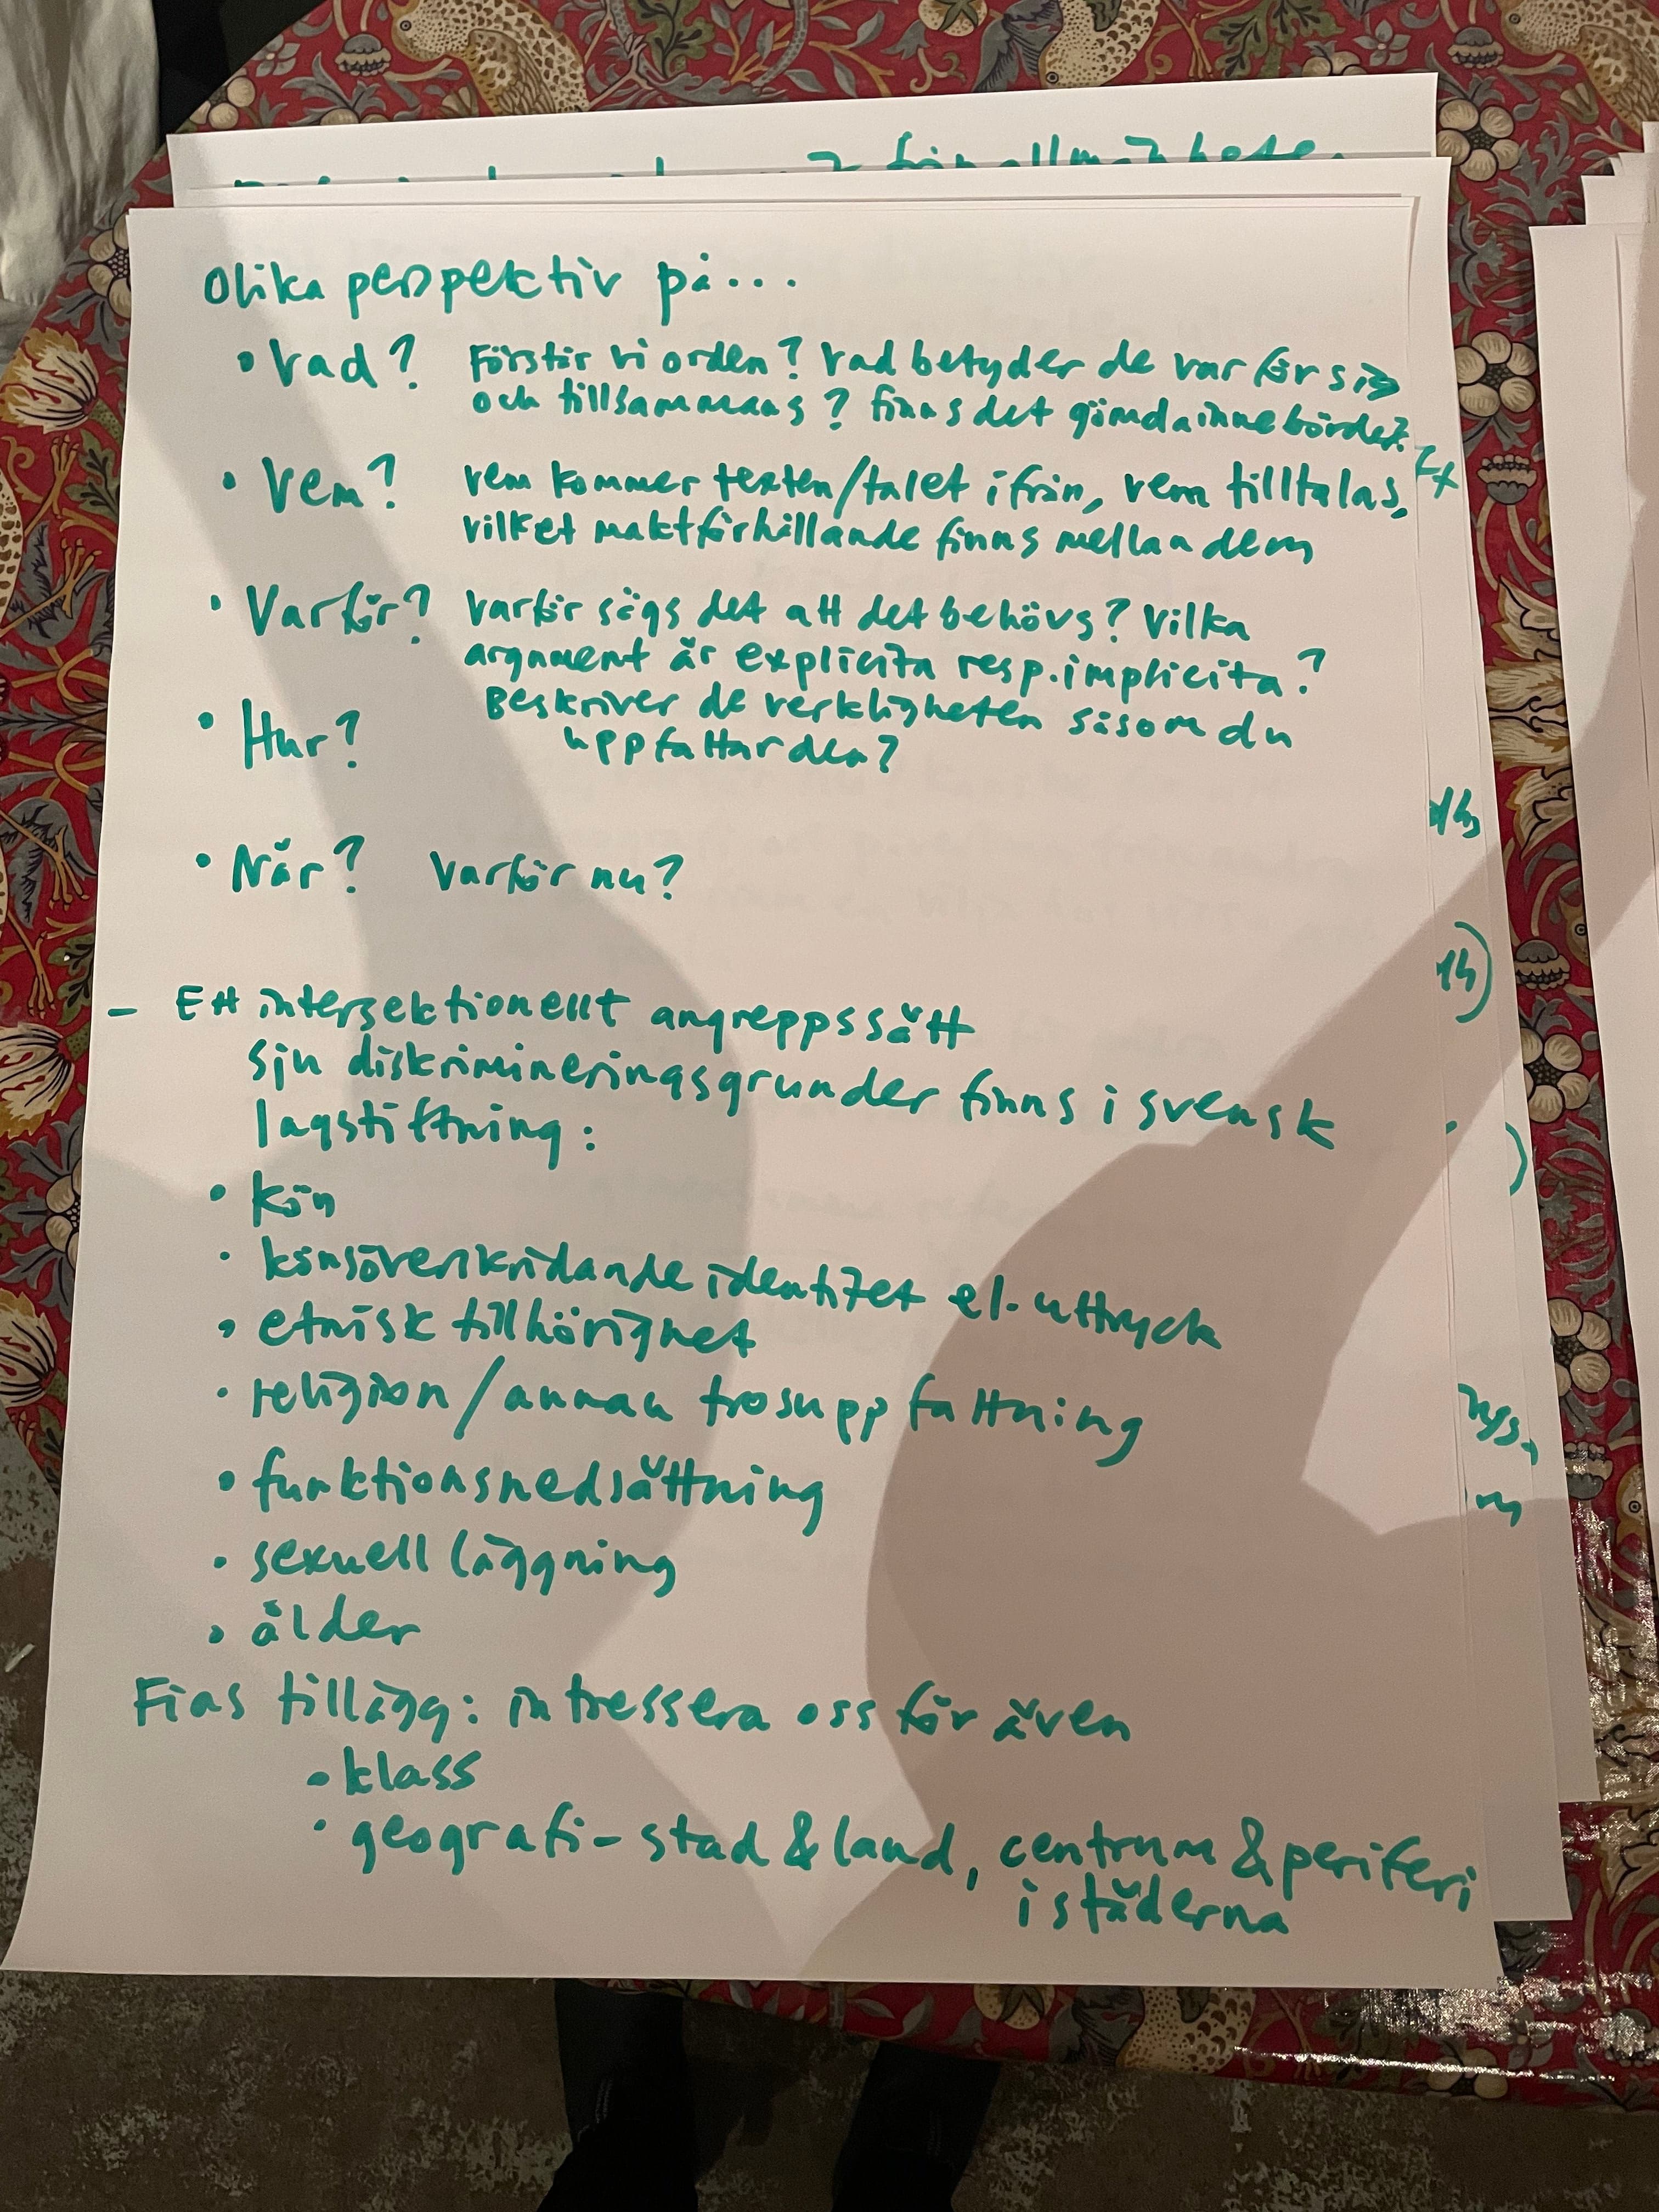 från allmänheten
Olika perspektiv på...
• Vad? Förstår vi orden? Vad betyder de var för sig
och tillsammans? finns det gömda innebörder?
• Vem? vem kommer texten/talet ifrån, vem tilltalas,
vilket maktförhållande finns mellan dem
• Varför? Varför sägs det att det behövs? Vilka
argument är explicita resp. implicita?
Beskriver de verkligheten såsom du
• Hur? uppfattar den?
• När? Varför nu?
- Ett intersektionellt angreppssätt
Sju diskrimineringsgrunder finns i svensk
lagstiftning:
• kön
• könsöverskridande identitet el. uttryck
• etnisk tillhörighet
• religion/annan trosuppfattning
• funktionsnedsättning
• sexuell läggning
• ålder
Fias tillägg: intressera oss för även
• klass
• geografi - stad & land, centrum & periferi
i städerna